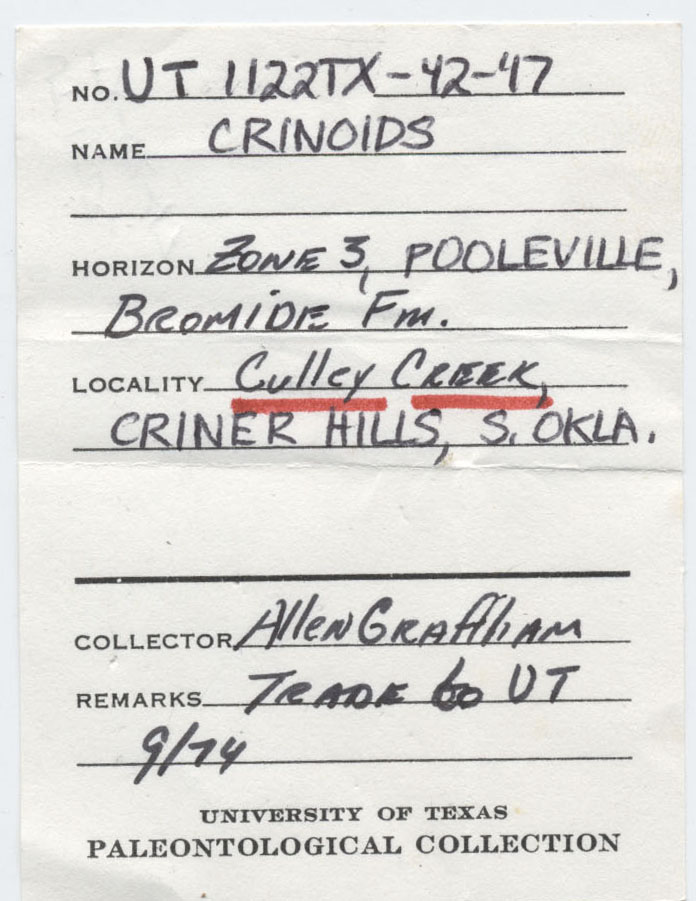 NO. UT 1122TX-42-47
NAME CRINOIDS
HORIZON ZONE 3, POOLEVILLE,
BROMIDE Fm.
LOCALITY Culley CREEK,
CRINER HILLS, S. OKLA.
COLLECTOR Allen Graffham
REMARKS TRADE to UT
9/74
UNIVERSITY OF TEXAS
PALEONTOLOGICAL COLLECTION